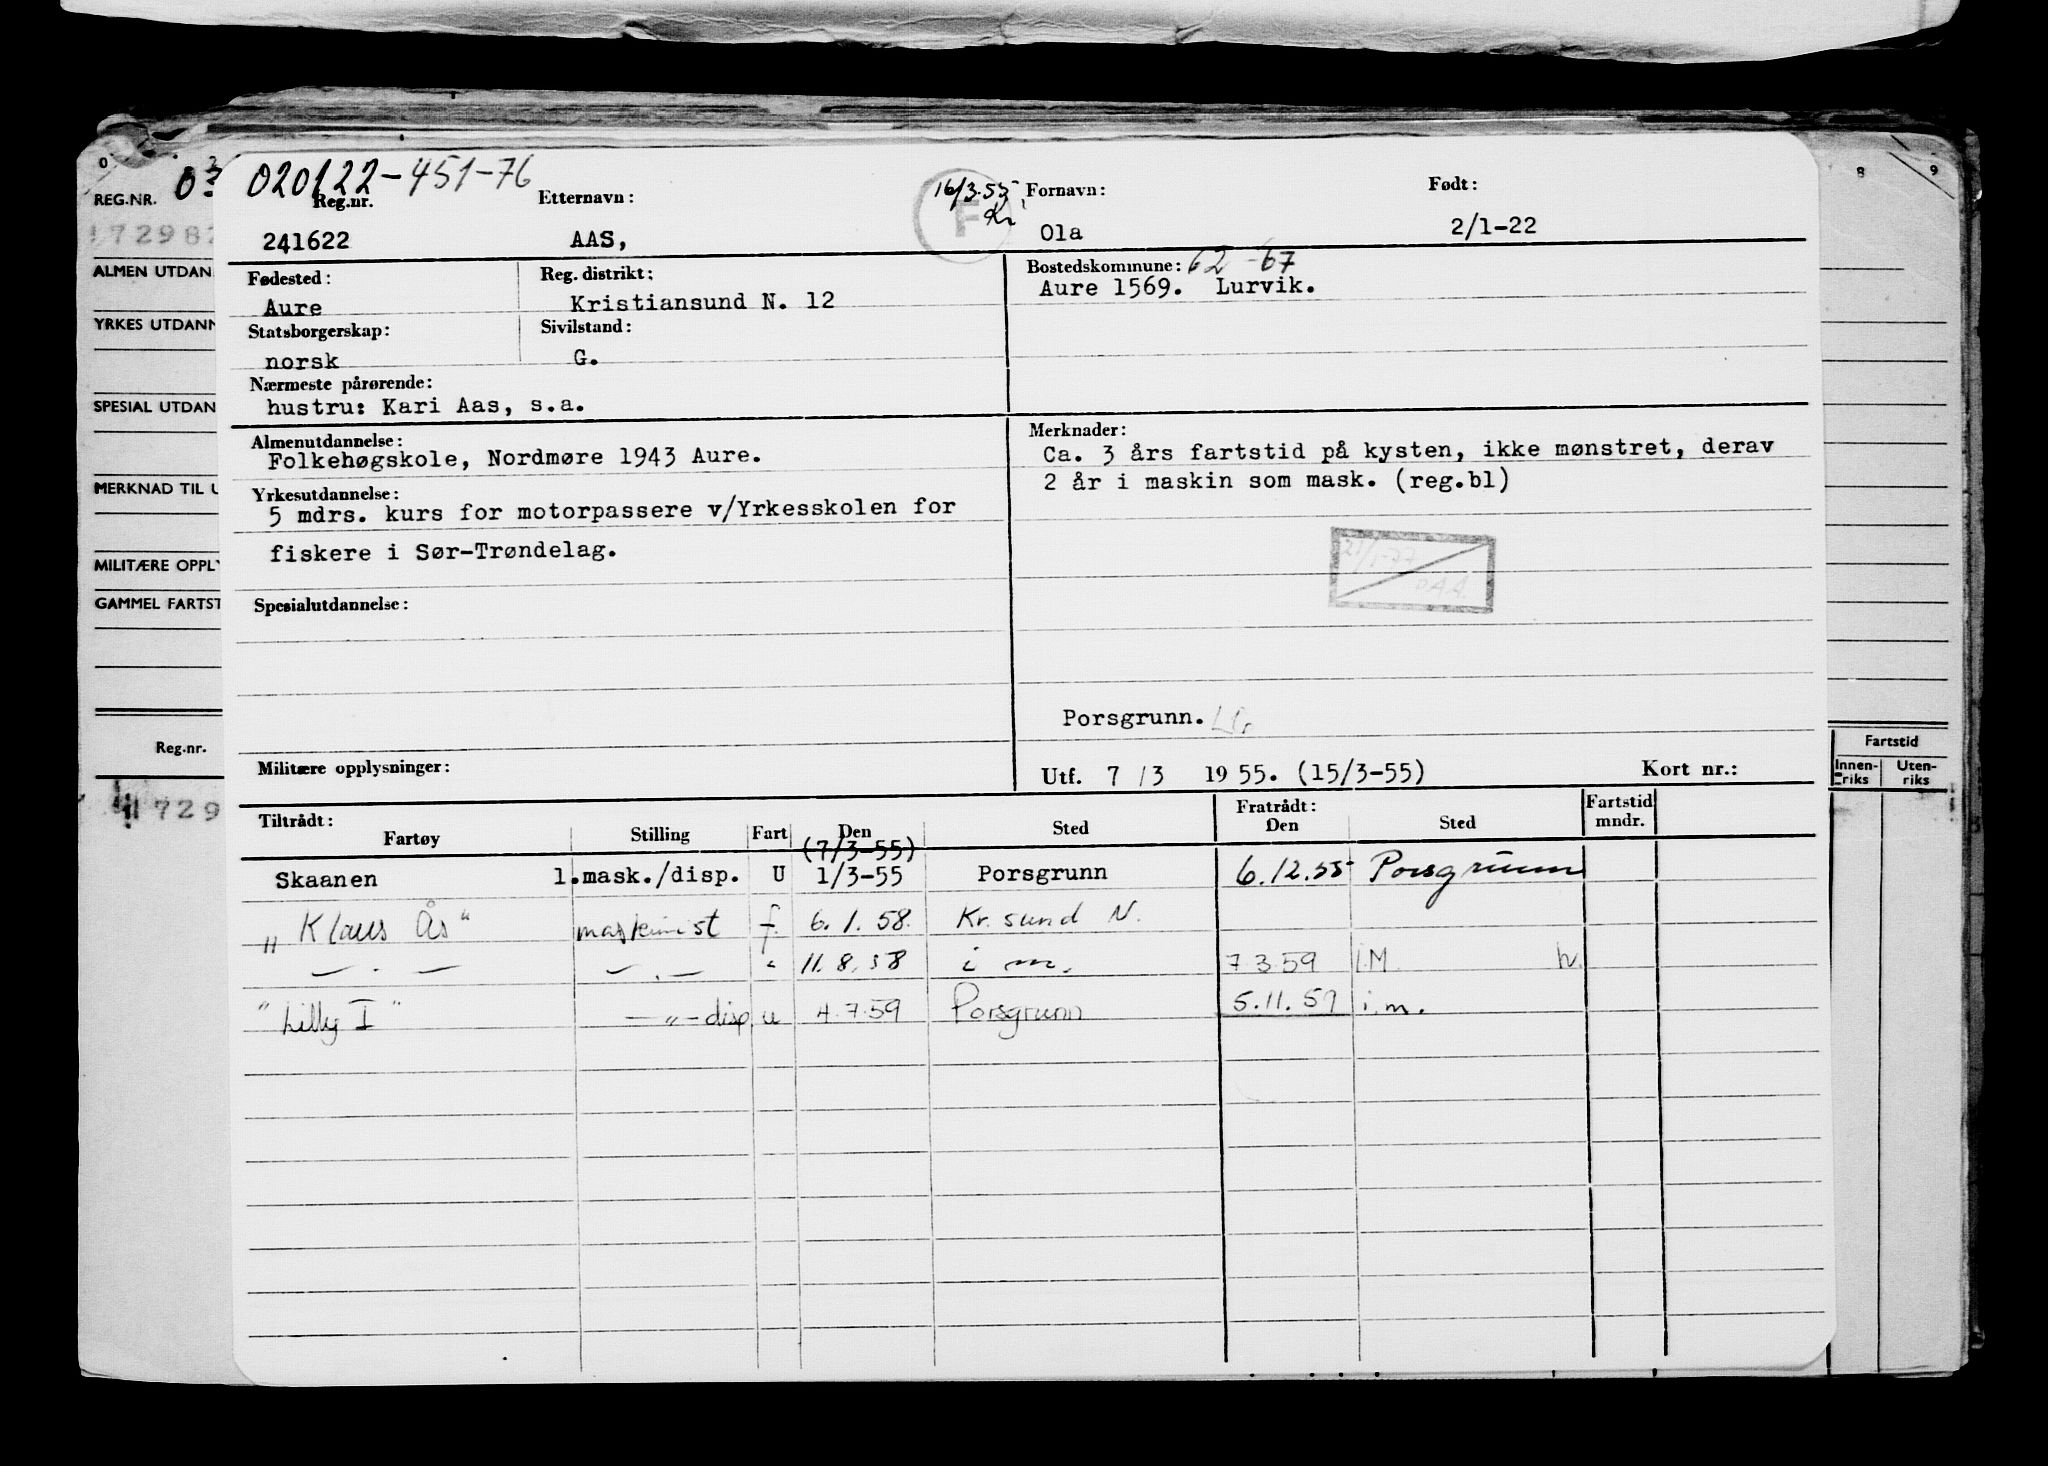 020122-451-76
Reg.nr. Etternavn: 16/3.55 Kr. F Fornavn: Født:
241622 AAS, Ola 2/1-22
Fødested: Reg. distrikt: Bostedskommune: 62-67
Aure Kristiansund N. 12 Aure 1569. Lurvik.
Statsborgerskap: Sivilstand:
norsk G.
Nærmeste pårørende:
hustru: Kari Aas, s.a.
Almenutdannelse: Merknader:
Folkehøgskole, Nordmøre 1943 Aure. Ca. 3 års fartstid på kysten, ikke mønstret, derav
Yrkesutdannelse: 2 år i maskin som mask. (reg.bl)
5 mdrs. kurs for motorpassere v/Yrkesskolen for
fiskere i Sør-Trøndelag.
21/1-77
Spesialutdannelse:
Porsgrunn.
Militære opplysninger: Utf. 7 /3 1955. (15/3-55) Kort nr.:
Tiltrådt: Fratrådt: Fartstid
Fartøy Stilling Fart Den Sted Den Sted mndr.
(7/3-55)
Skaanen 1.mask./disp. U 1/3-55 Porsgrunn 6.12.55 Porsgrunn
„Klaus Ås“ maskinist f. 6.1.58. Kr.sund N.
— . — — . — " 11.8.58 i m. 7.3.59 i.M. h.
"Lilly I" — „ — disp. u 4.7.59 Porsgrunn 5.11.59 i.m.
REG.NR. 03
172982
ALMEN UTDAN
YRKES UTDANN
SPESIAL UTDAN
MERKNAD TIL U
MILITÆRE OPPLY
GAMMEL FARTST
Reg.nr.
1729
0
8 9
Fartstid
Innen-riks Uten-riks